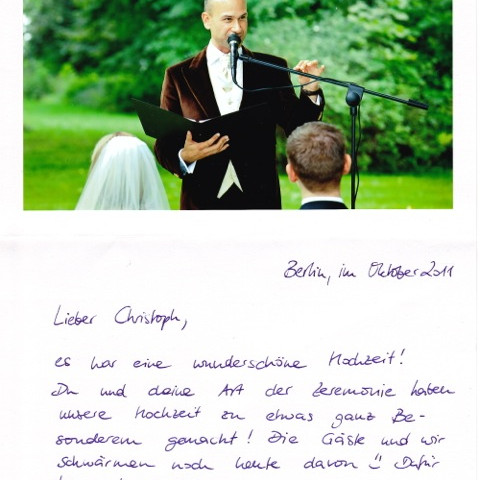 Berlin, im Oktober 2011
Lieber Christoph,
es war eine wunderschöne Hochzeit!
Du und deine Art der Zeremonie haben
unsere Hochzeit zu etwas ganz Be-
sonderem gemacht! Die Gäste und wir
schwärmen noch heute davon ☺ Dafür